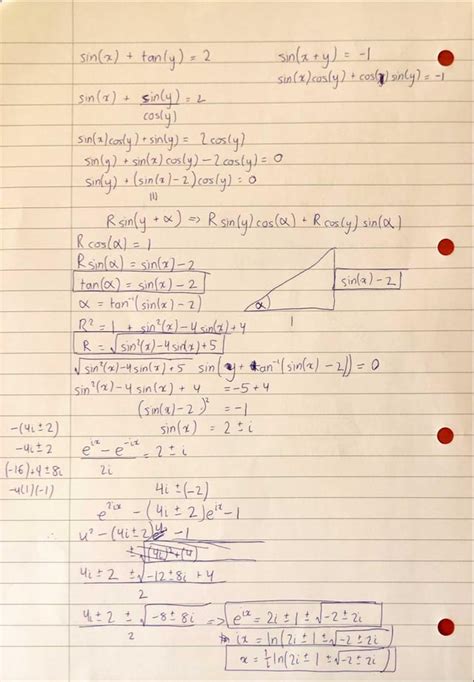 sin(x) + tan(y) = 2
sin(x+y) = -1
sin(x)cos(y) + cos(x)sin(y) = -1
sin(x) + sin(y)/cos(y) = 2
sin(x)cos(y) + sin(y) = 2cos(y)
sin(y) + sin(x)cos(y) - 2cos(y) = 0
sin(y) + (sin(x)-2)cos(y) = 0
Rsin(y + α) => Rsin(y)cos(α) + Rcos(y)sin(α)
Rcos(α) = 1
Rsin(α) = sin(x) - 2
tan(α) = sin(x) - 2
sin(x) - 2
α = tan⁻¹(sin(x) - 2)
α
1
R² = 1 + sin²(x) - 4sin(x) + 4
R = √(sin²(x) - 4sin(x) + 5)
√(sin²(x) - 4sin(x) + 5) sin(y + tan⁻¹(sin(x) - 2)) = 0
sin²(x) - 4sin(x) + 4 = -5 + 4
(sin(x) - 2)² = -1
sin(x) = 2 ± i
-(4i ± 2)
-4i ± 2
(-16) + 4 ± 8i
-4(1)(-1)
(e^ix - e^-ix)/2i = 2 ± i
4i ± (-2)
e^2ix - (4i ± 2)e^ix - 1
u² - (4i ± 2)u - 1
4i ± 2 ± √(-12 ± 8i + 4)
2
(4i ± 2 ± √(-8 ± 8i))/2 => e^ix = 2i ± 1 ± √(-2 ± 2i)
ix = ln(2i ± 1 ± √(-2 ± 2i))
x = 1/i ln(2i ± 1 ± √(-2 ± 2i))